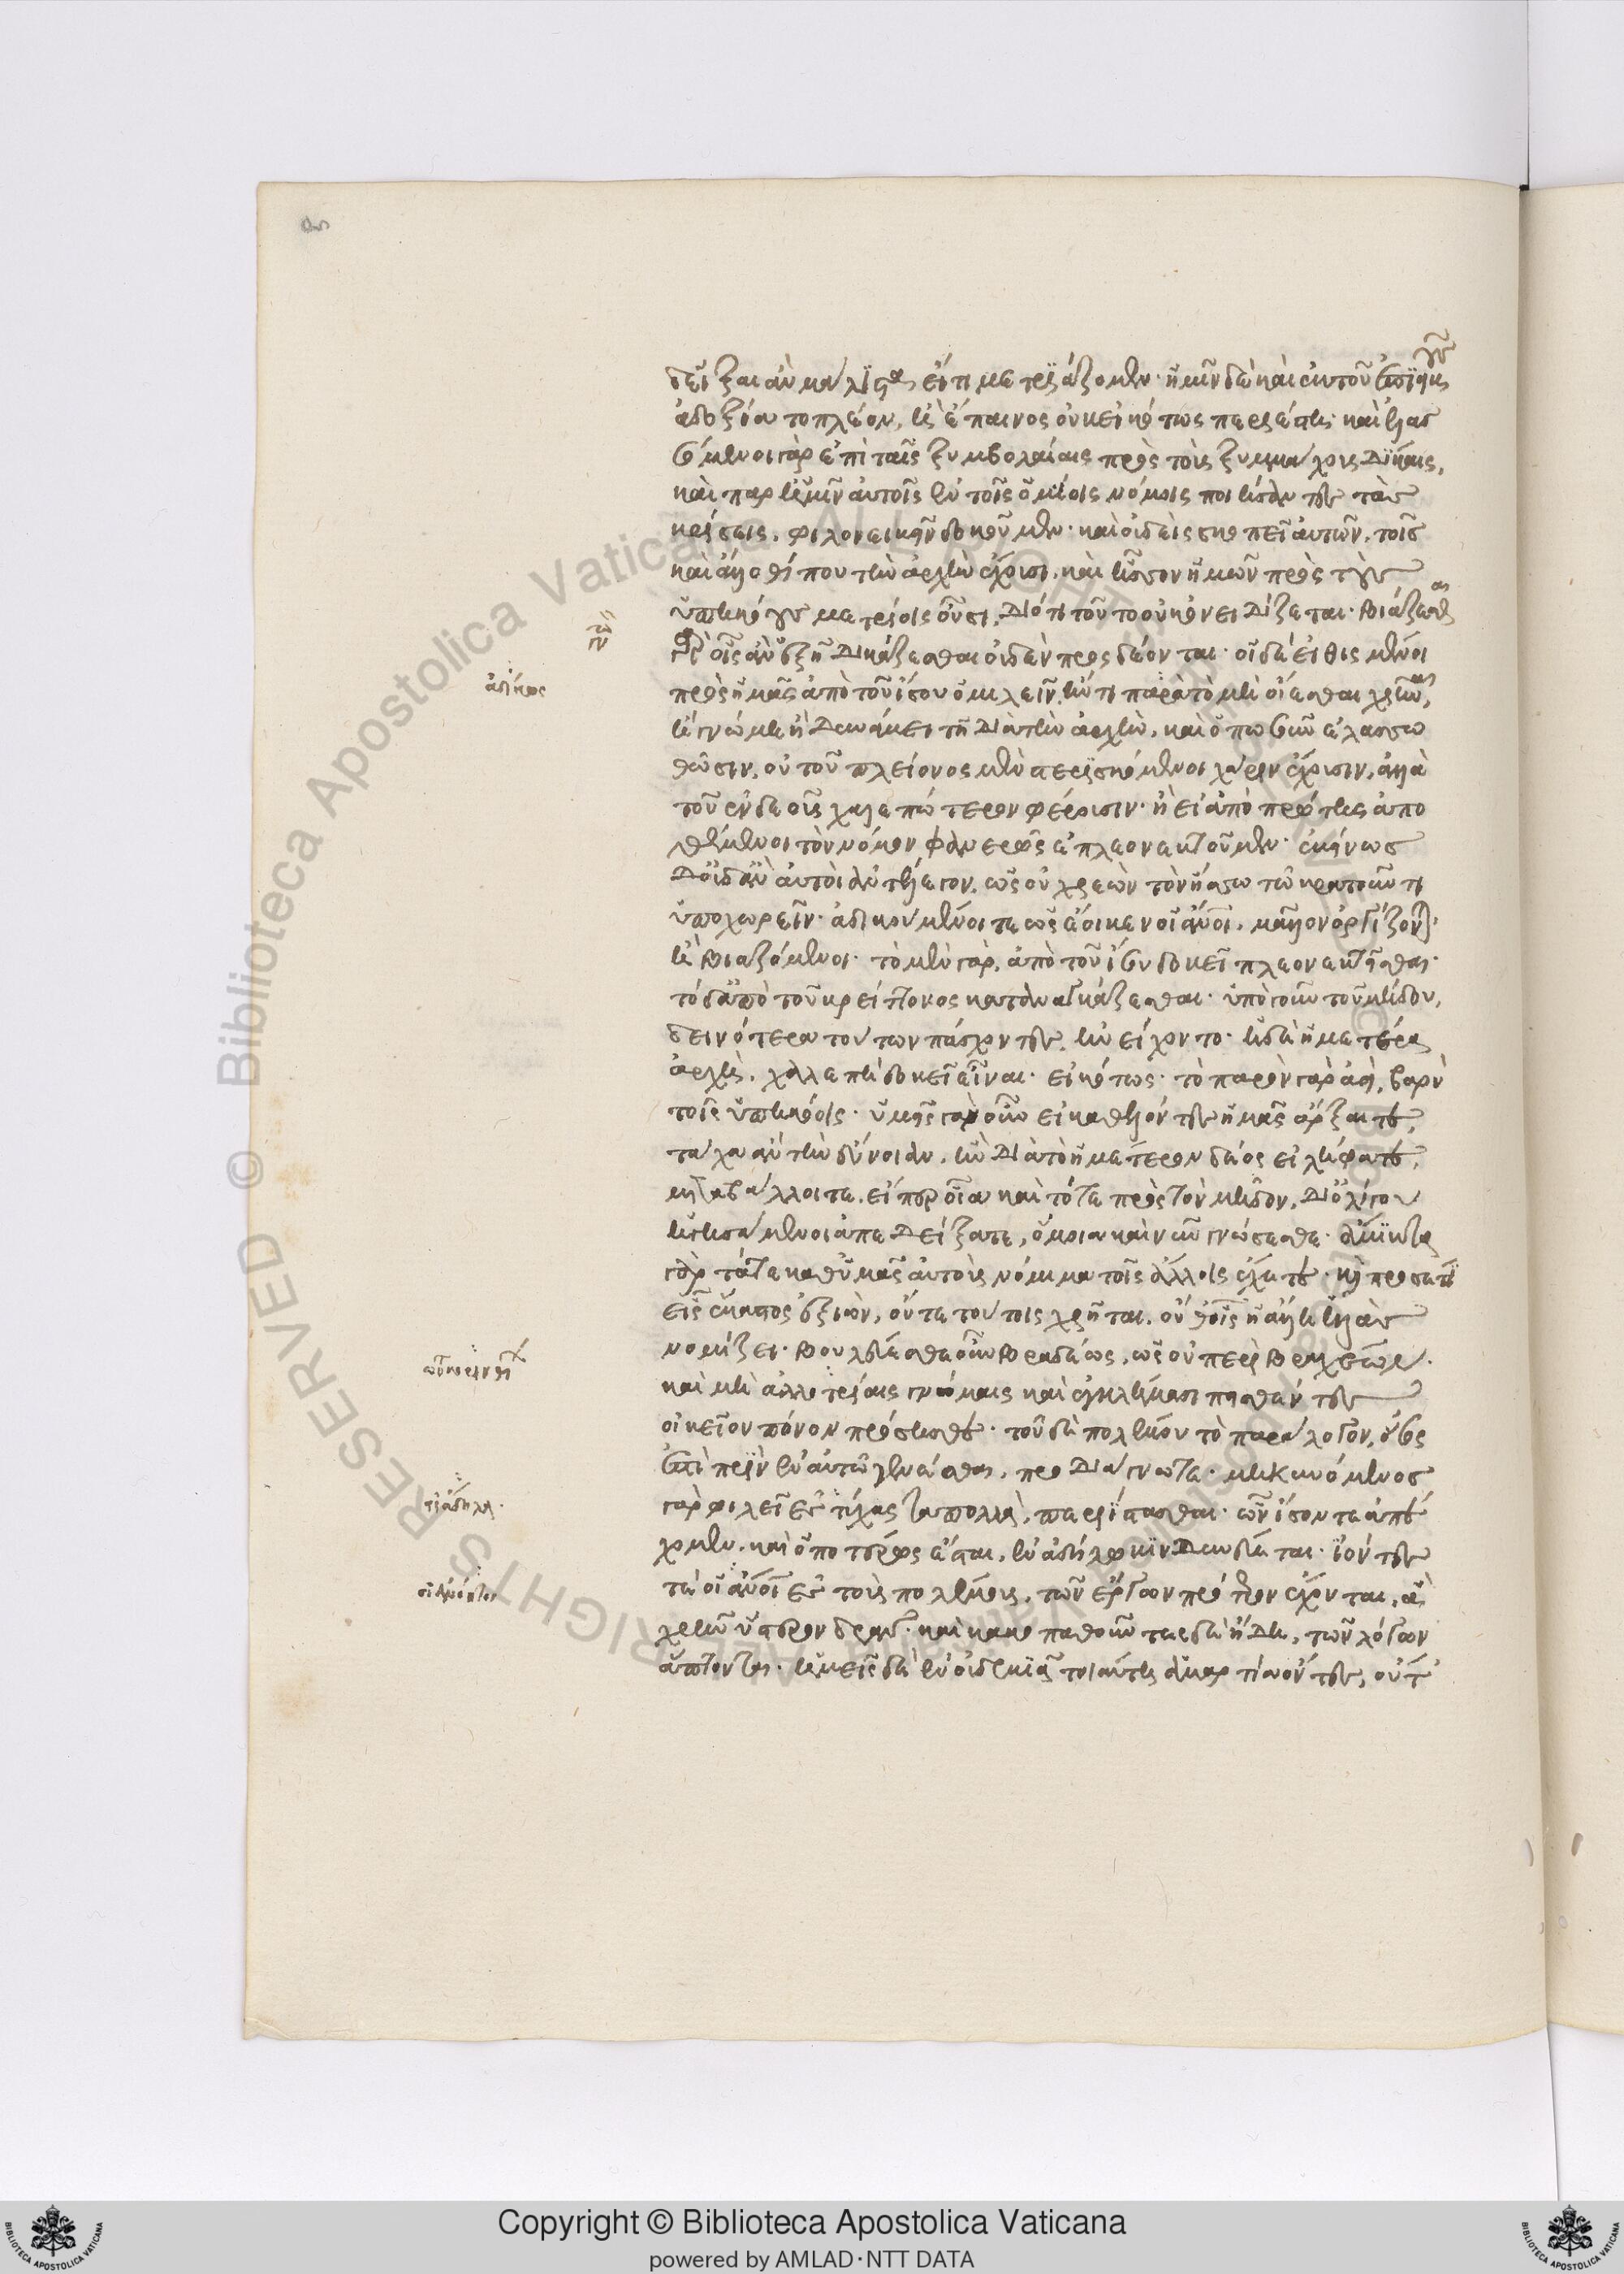 δεῖξαι ἂν μάλιστα, εἴ τι μετριάζομεν· ἡμῖν δὲ καὶ ἐκ τοῦ ἐπιεικοῦς
ἀδοξία τὸ πλέον, ἢ ἔπαινος οὐκ εἰκότως περιέστη· καὶ ἐλασ
σούμενοι γὰρ ἐπὶ ταῖς ξυμβολαίαις πρὸς τοὺς ξυμμάχους δίκαις,
καὶ παρ' ἡμῖν αὐτοῖς ἐν τοῖς ὁμοίοις νόμοις ποιήσαντες τὰς
κρίσεις, φιλονεικεῖν δοκοῦμεν· καὶ οὐδεὶς σκοπεῖ αὐτῶν, τοῖς
καὶ ἄλλοθί που τὴν ἀρχὴν ἔχουσι, καὶ ἧσσον ἡμῶν πρὸς τοὺς
ὑπηκόους μετρίοις οὖσι, διότι τοῦτο οὐκ ὀνειδίζεται· βιάζεσθαι
γὰρ οἷς ἂν ἐξῇ δικάζεσθαι οὐδὲν προσδέονται· οἱ δὲ εἰθισμένοι
πρὸς ἡμᾶς ἀπὸ τοῦ ἴσου ὁμιλεῖν, ἤν τι παρὰ τὸ μὴ οἴεσθαι χρῆναι,
ἢ γνώμῃ ἢ δυνάμει τῇ διὰ τὴν ἀρχὴν, καὶ ὁπωσοῦν ἐλασσω
θῶσιν, οὐ τοῦ πλείονος μὴ στερισκόμενοι χάριν ἔχουσιν, ἀλλὰ
τοῦ ἐνδεοῦς χαλεπώτερον φέρουσιν· ἢ εἰ ἀπὸ πρώτης ἀπο
θέμενοι τὸν νόμον φανερῶς ἐπλεονεκτοῦμεν· ἐκείνως
δ' οὐδ' ἂν αὐτοὶ ἀντέλεγον, ὡς οὐ χρεὼν τὸν ἥσσω τῷ κρατοῦντι
ὑποχωρεῖν· ἀδικούμενοί τε ὡς ἔοικεν οἱ ἄνθρωποι, μᾶλλον ὀργίζονται·
ἢ βιαζόμενοι· τὸ μὲν γὰρ, ἀπὸ τοῦ ἴσου δοκεῖ πλεονεκτεῖσθαι·
τὸ δ' ἀπὸ τοῦ κρείττονος καταναγκάζεσθαι· ὑπὸ γοῦν τοῦ μήδου,
δεινότερα τούτων πάσχοντες, ἠνείχοντο· ἡ δὲ ἡμετέρα
ἀρχὴ, χαλεπὴ δοκεῖ εἶναι· εἰκότως· τὸ παρὸν γὰρ ἀεὶ, βαρὺ
τοῖς ὑπηκόοις· ὑμεῖς γὰρ οὖν εἰ καθελόντες ἡμᾶς ἄρξαιτε,
τάχα ἂν τὴν εὔνοιαν, ἣν διὰ τὸ ἡμέτερον δέος εἰλήφατε,
μεταβάλλοιτε, εἴπερ οἷα καὶ τότε πρὸς τὸν μῆδον, δι' ὀλίγου
ἡγησάμενοι ἀπεδείξατε, ὅμοια καὶ νῦν γνώσεσθε· ἄμικτα
γὰρ τά τε καθ' ὑμᾶς αὐτοὺς νόμιμα τοῖς ἄλλοις ἔχετε· καὶ προσέτι
εἷς ἕκαστος ἐξιὼν, οὔτε τούτοις χρῆται, οὔθ' οἷς ἡ ἄλλη ἑλλὰς
νομίζει· βουλεύεσθε οὖν βραδέως, ὡς οὐ περὶ βραχέων·
καὶ μὴ ἀλλοτρίαις γνώμαις καὶ ἐγκλήμασι πεισθέντες
οἰκεῖον πόνον πρόσθησθε· τοῦ δὲ πολέμου τὸ παράλογον, ὅσος
ἐστὶ πρὶν ἐν αὐτῷ γενέσθαι, προδιάγνωτε· μηκυνόμενος
γὰρ φιλεῖ ἐς τύχας τὰ πολλὰ, περιίστασθαι· ὧν ἴσον τε ἀπέ
χομεν, καὶ ὁποτέρως ἔσται, ἐν ἀδήλῳ κινδυνεύεται· ἰόντες
τε οἱ ἄνθρωποι ἐς τοὺς πολέμους, τῶν ἔργων πρότερον ἔχονται, ἃ
χρῆν ὕστερον δρᾶν· καὶ κακοπαθοῦντες δὲ ἤδη, τῶν λόγων
ἅπτονται· ἡμεῖς δὲ ἐν οὐδεμιᾷ τοιαύτῃ ἁμαρτίᾳ ὄντες, οὔτ'